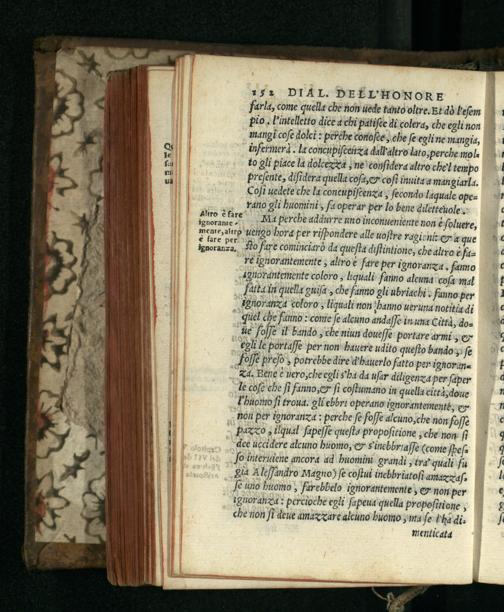 152 DIAL. DELL'HONORE
farla, come quella che non uede tanto oltre. Et dò l'esem
pio. l'intelletto dice a chi patisce di colera, che egli non
mangi cose dolci: perche conosce, che se egli ne mangia,
infermerà. la concupiscenza dall'altro lato, perche mol
to gli piace la dolcezza, ne considera altro che'l tempo
presente, disidera quella cosa, & cosi inuita a mangiarla.
Cosi uedete che la concupiscenza, secondo laquale ope-
rano gli huomini, fa operar per lo bene diletteuole.
Ma perche addurre uno inconueniente non è soluere,
uengo hora per rispondere alle uostre ragioni: & a que
sto fare cominciarò da questa distintione, che altro è fa-
re ignorantemente, altro è fare per ignoranza. fanno
ignorantemente coloro, liquali fanno alcuna cosa mal
fatta in quella guisa, che fanno gli ubriachi. fanno per
ignoranza coloro, liquali non hanno ueruna notitia di
quel che fanno: come se alcuno andasse in una Città, do-
ue fosse il bando, che niun douesse portare armi, &
egli le portasse per non hauere udito questo bando, se
fosse preso, potrebbe dire d'hauerlo fatto per ignoran-
za. Bene è uero, che egli s'ha da usar diligenza per saper
le cose che si fanno, & si costumano in quella città, doue
l'huomo si troua. gli ebbri operano ignorantemente, &
non per ignoranza: perche se fosse alcuno, che non fosse
pazzo, ilqual sapesse questa propositione, che non si
dee uccidere alcuno huomo, & s'inebbriasse (come spes-
so interuiene ancora ad huomini grandi, tra' quali fu
gia Alessandro Magno) se costui inebbriatosi amazzas-
se uno huomo, farebbelo ignorantemente, & non per
ignoranza: percioche egli sapeua quella propositione,
che non si deue amazzare alcuno huomo, ma se l'ha di-
menticata
Altro è fare
ignorante-
mente, altro
è fare per
ignoranza.